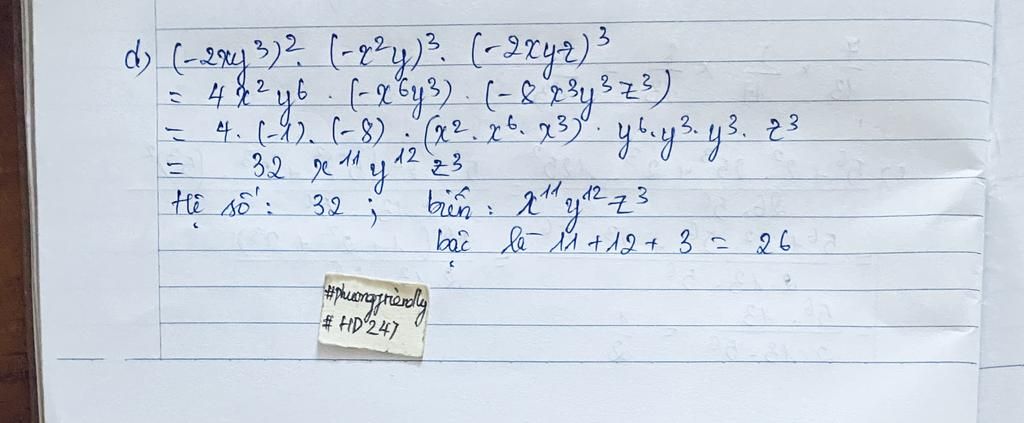 d) (-2xy³)². (-x²y)³. (-2xyz)³
= 4x²y⁶ . (-x⁶y³) . (-8x³y³z³)
= 4. (-1). (-8) . (x². x⁶. x³) . y⁶. y³. y³. z³
= 32 x¹¹y¹² z³
Hệ số: 32 ; biến: x¹¹y¹²z³
bậc là 11 + 12 + 3 = 26
#phuongfriendly
# HD247